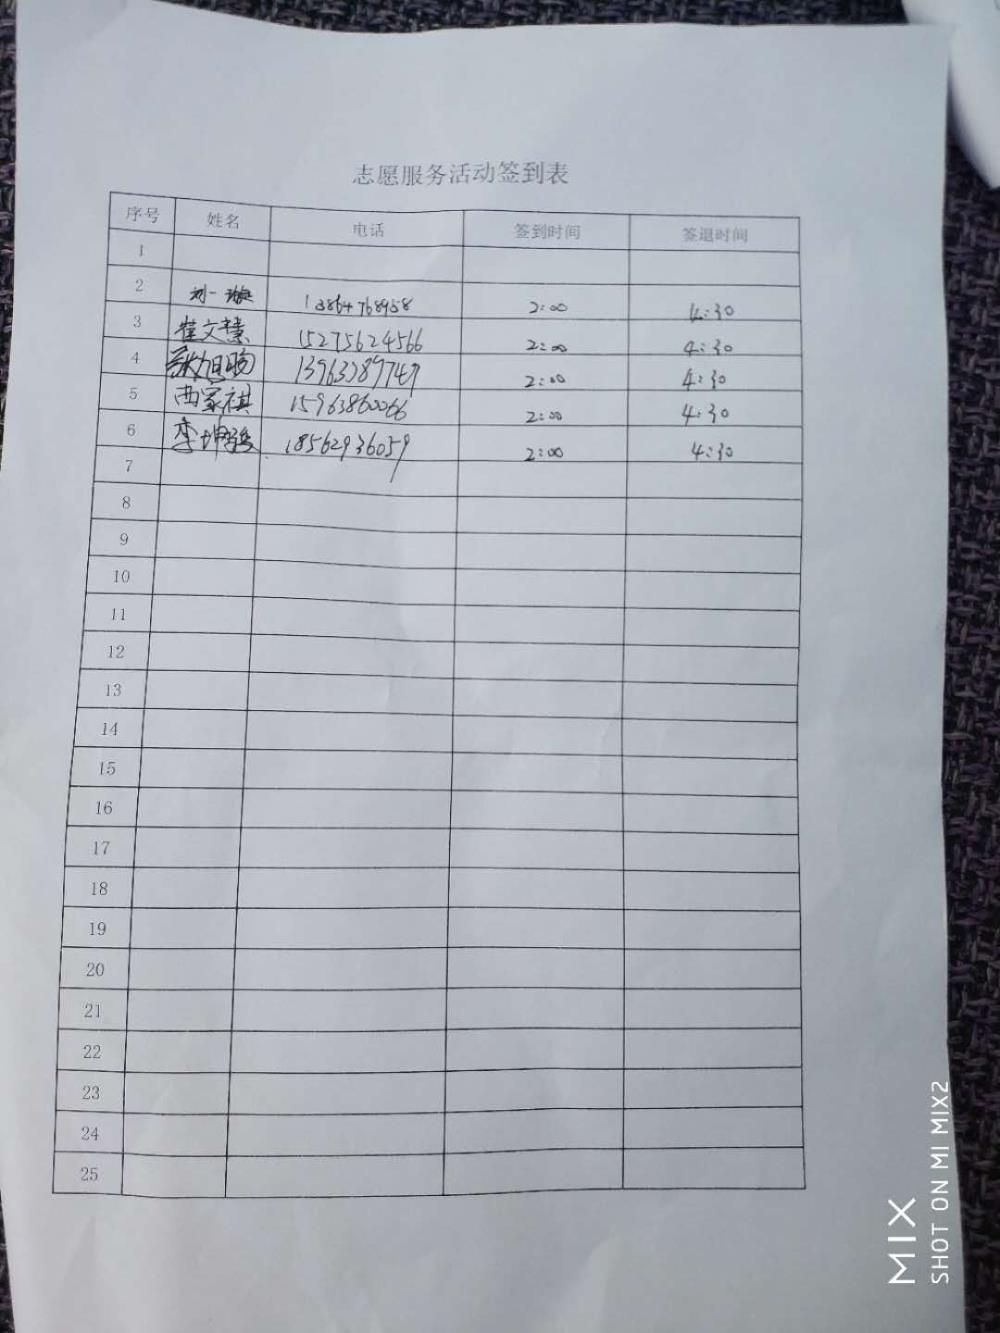 志愿服务活动签到表
序号 姓名 电话 签到时间 签退时间
1
2 刘一 13864768958 2:00 4:30
3 崔文慧 15275624566 2:00 4:30
4 旭 13963389747 2:00 4:30
5 西家祺 15963860066 2:00 4:30
6 李坤 18562936059 2:00 4:30
7
8
9
10
11
12
13
14
15
16
17
18
19
20
21
22
23
24
25
MIX
SHOT ON MI MIX2